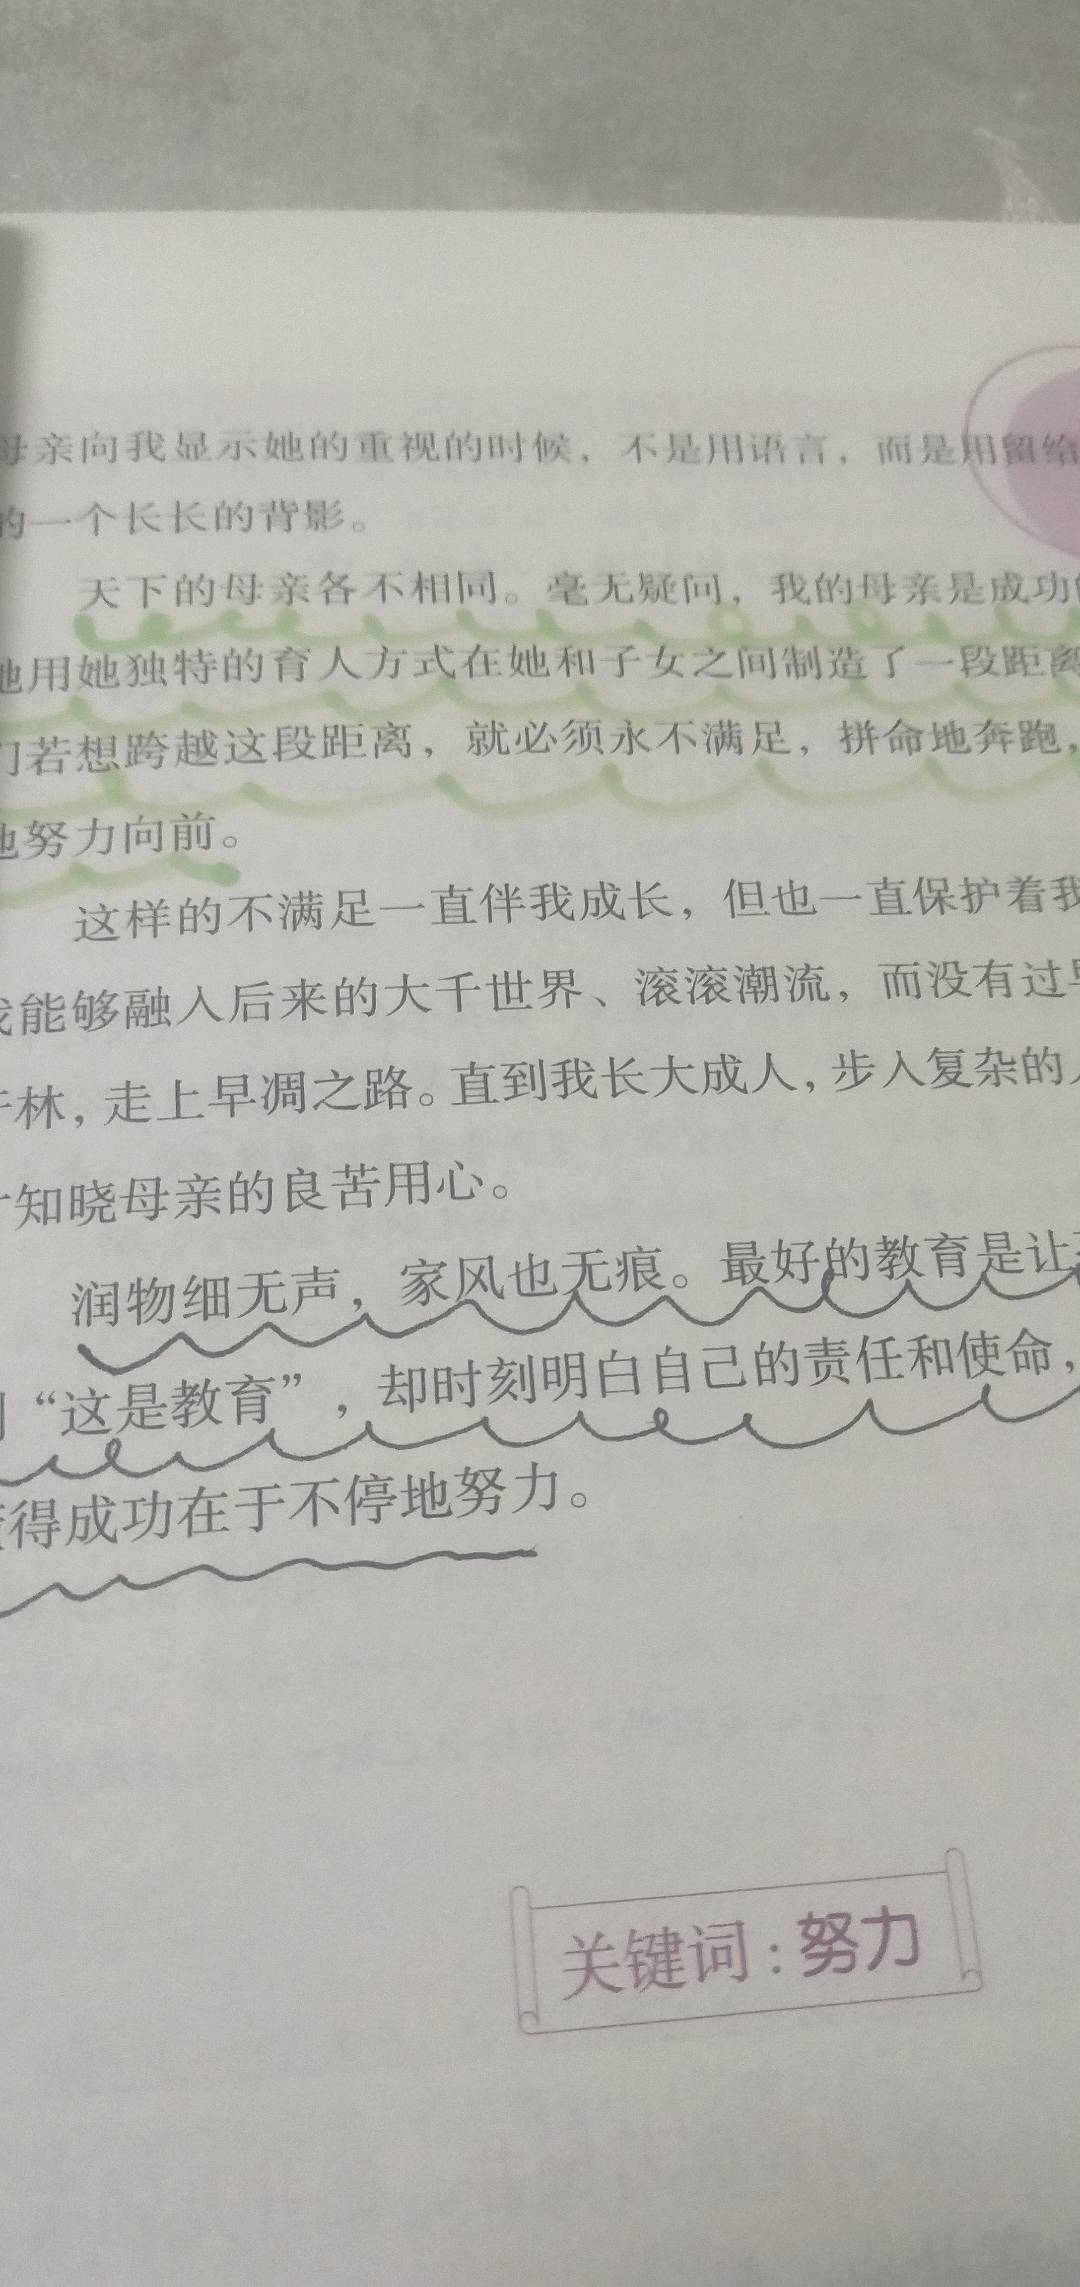 母亲向我显示她的重视的时候，不是用语言，而是用留给
的一个长长的背影。
天下的母亲各不相同。毫无疑问，我的母亲是成功
她用她独特的育人方式在她和子女之间制造了一段距离
们若想跨越这段距离，就必须永不满足，拼命地奔跑，
地努力向前。
这样的不满足一直伴我成长，但也一直保护着我
我能够融入后来的大千世界、滚滚潮流，而没有过早
林，走上早凋之路。直到我长大成人，步入复杂的
知晓母亲的良苦用心。
润物细无声，家风也无痕。最好的教育是让
“这是教育”，却时刻明白自己的责任和使命，
得成功在于不停地努力。
关键词：努力